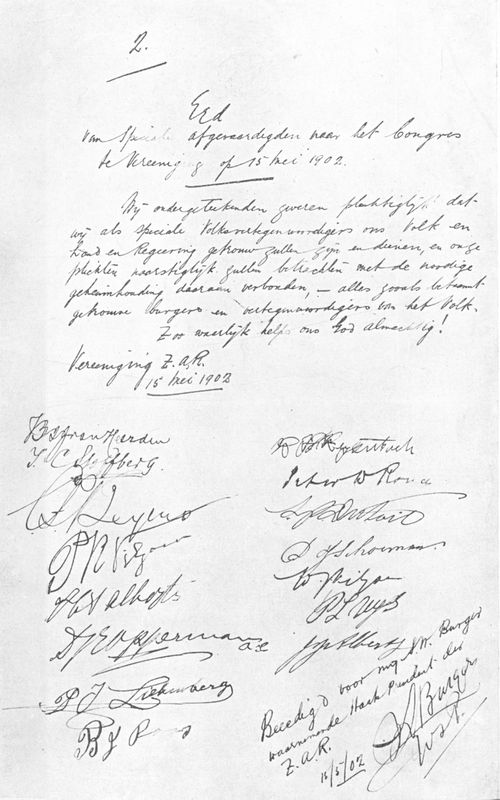 2.
Eed
van Speciale afgevaardigden naar het Congres
te Vereeniging op 15 Mei 1902.
Wij ondergeteekenden zweren plechtiglijk dat
wij als speciale Volksvertegenwoordigers ons Volk en
Land en Regeering getrouw zullen zijn en dienen, en onze
plichten naarstiglijk zullen betrachten met de noodige
geheimhouding daaraan verbonden, — alles zooals betaamt
getrouwe burgers en vertegenwoordigers van het Volk.
Zoo waarlijk helpe ons God almachtig!
Vereeniging Z.A.R.
15 Mei 1902
J. C. Stoffberg.
P R Viljoen
H S Alberts
D J E Opperman
P J Liebenberg
B J Roos
D J Schoeman
P L Uys
J J Alberts
Beeedig'd voor mij S. W. Burger
waarnemende Staats President der
Z.A.R.
15/5/02
Burger